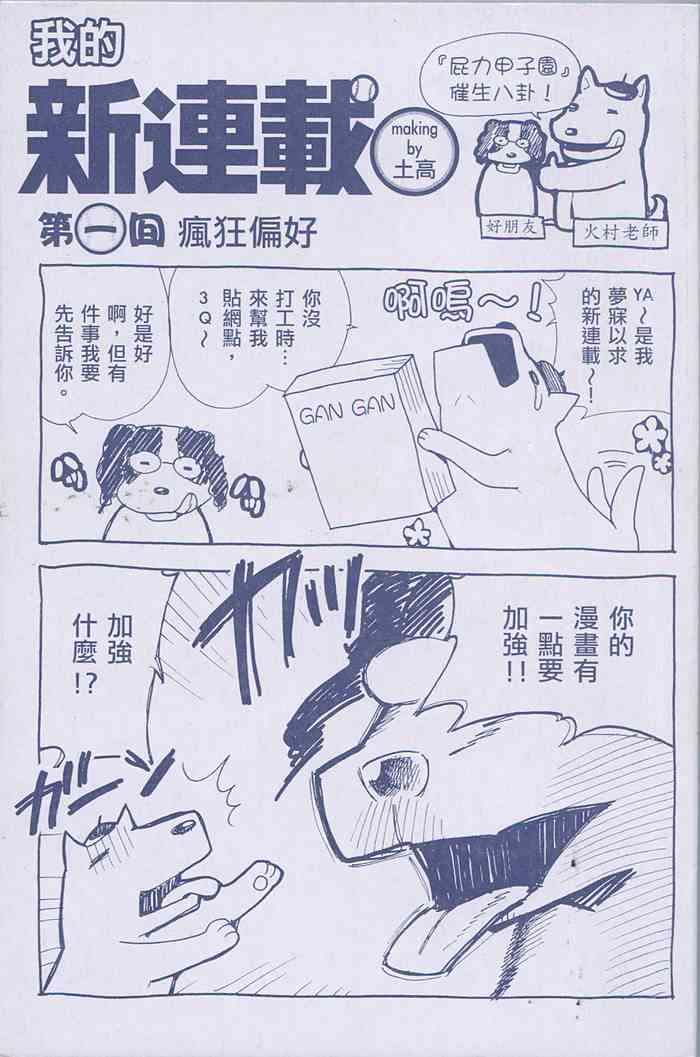 我的
新連載
making
by
土高
第一回 瘋狂偏好
『屁力甲子園』
催生八卦！
好朋友
火村老師
YA～是我
夢寐以求
的新連載～！
啊嗚～！
你沒
打工時…
來幫我
貼網點，
3Q～
GAN GAN
好是好
啊，但有
件事我要
先告訴你。
你的
漫畫有
一點要
加強!!
ガッ
加強
什麼!?
ガーン